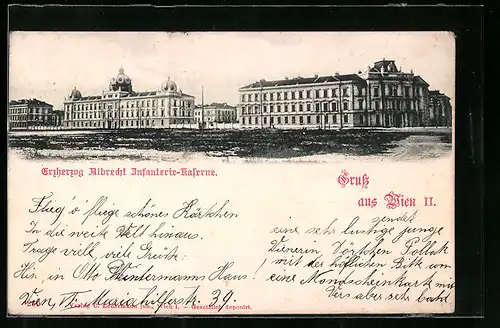 Erzherzog Albrecht Infanterie-Kaserne.
Gruß
aus Wien II.
Flieg' o' fliege schönes Kärtchen
In die weite Welt hinaus.
Trage viell, viele Grüße
Hin, in Otto Wintermanns Haus!
Wien, VI. Mariahilferstr. 39.
sendet
eine sehr lustige junge
Wienerin
mit der höflichen Bitte um
eine Mondscheinkarte mit
Vers aber sehr bald
Wien I. – Gesetzlich deponirt.